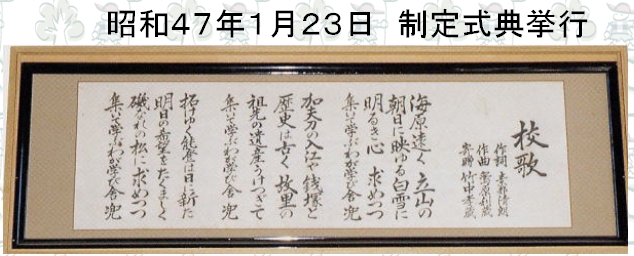 昭和47年1月23日 制定式典挙行
校歌
作詞
作曲
寄贈 竹中
海原遠く 立山の
朝日に映ゆる白雪に
明るき心 求めつつ
集いて学ぶわが学び舎 兜
加夫刀の入江や銭塚と
歴史は古く 故里の
祖先の遺産うけつぎて
集いて学ぶわが学び舎 兜
拓けゆく能登は日に新た
明日の希望をたくましく
磯なれの松に求めつつ
集いて学ぶわが学び舎 兜